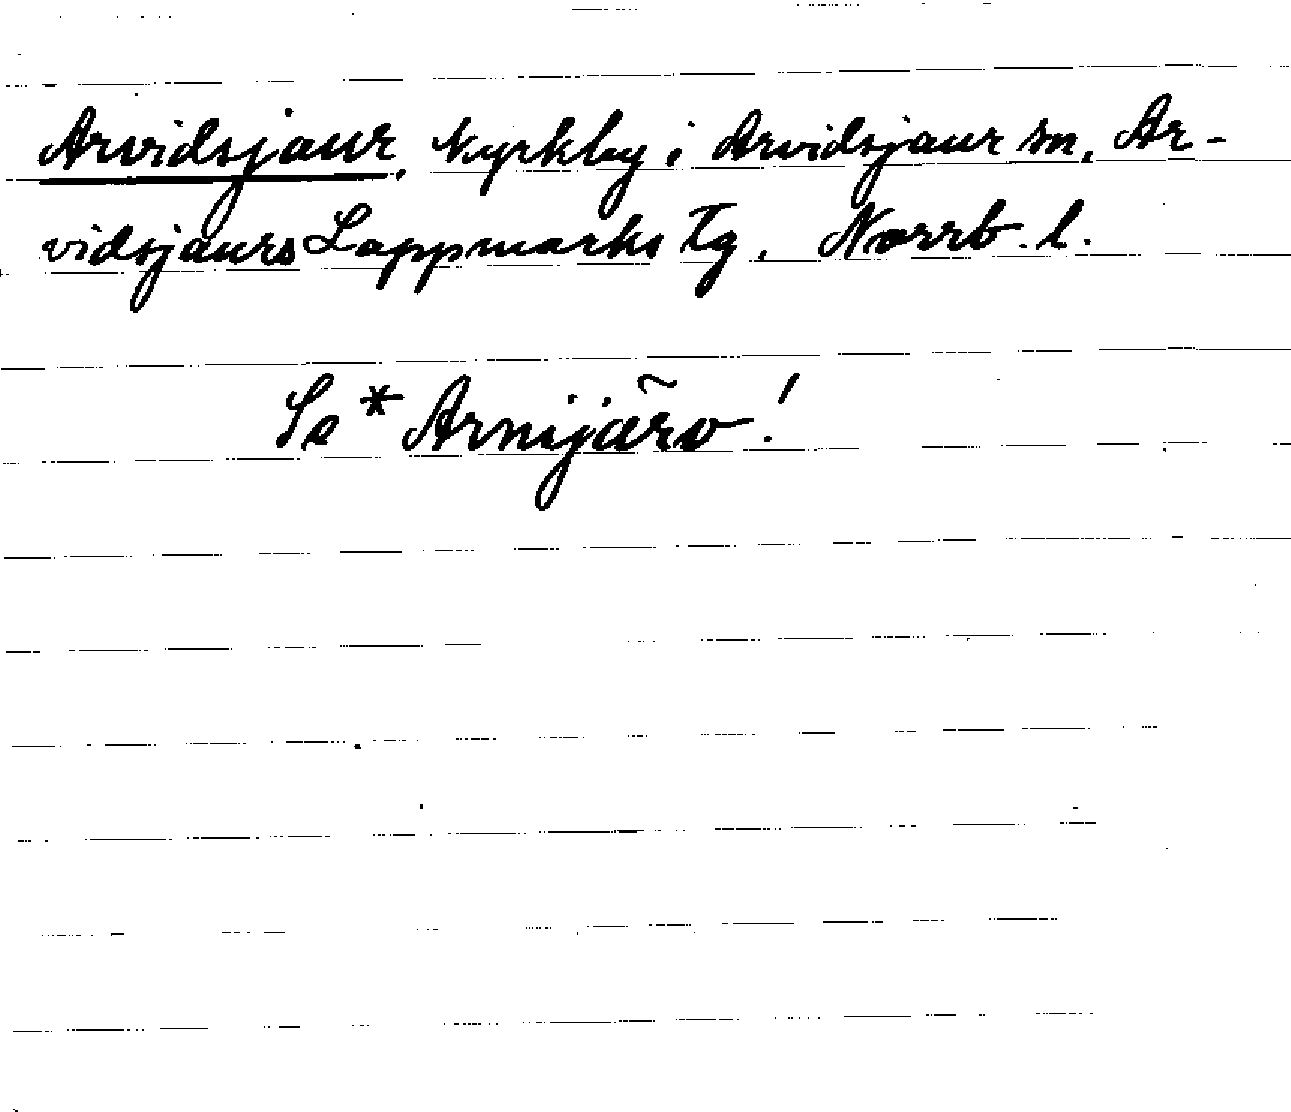 Arvidsjaur, Kyrkby i Arvidsjaur sn, Ar-
vidsjaurs Lappmarks tg, Norrb. l.
Se * Arnijärv!